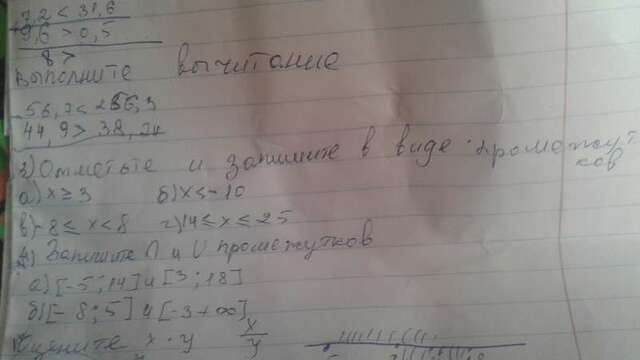 7,2 < 31,6
9,6 > 0,5
8 >
Выполните вычитание
56,7 < 256,3
44,9 > 38,24
3) Отметьте и запишите в виде промежутков
а) x ≥ 3 б) x ≤ -10
в) -8 ≤ x < 8 г) 14 ≤ x ≤ 25
4) Запишите ∩ и ∪ промежутков
а) [-5; 14] и [3; 18]
б) [-8; 5] и [-3 +∞]
Оцените x · y x/y